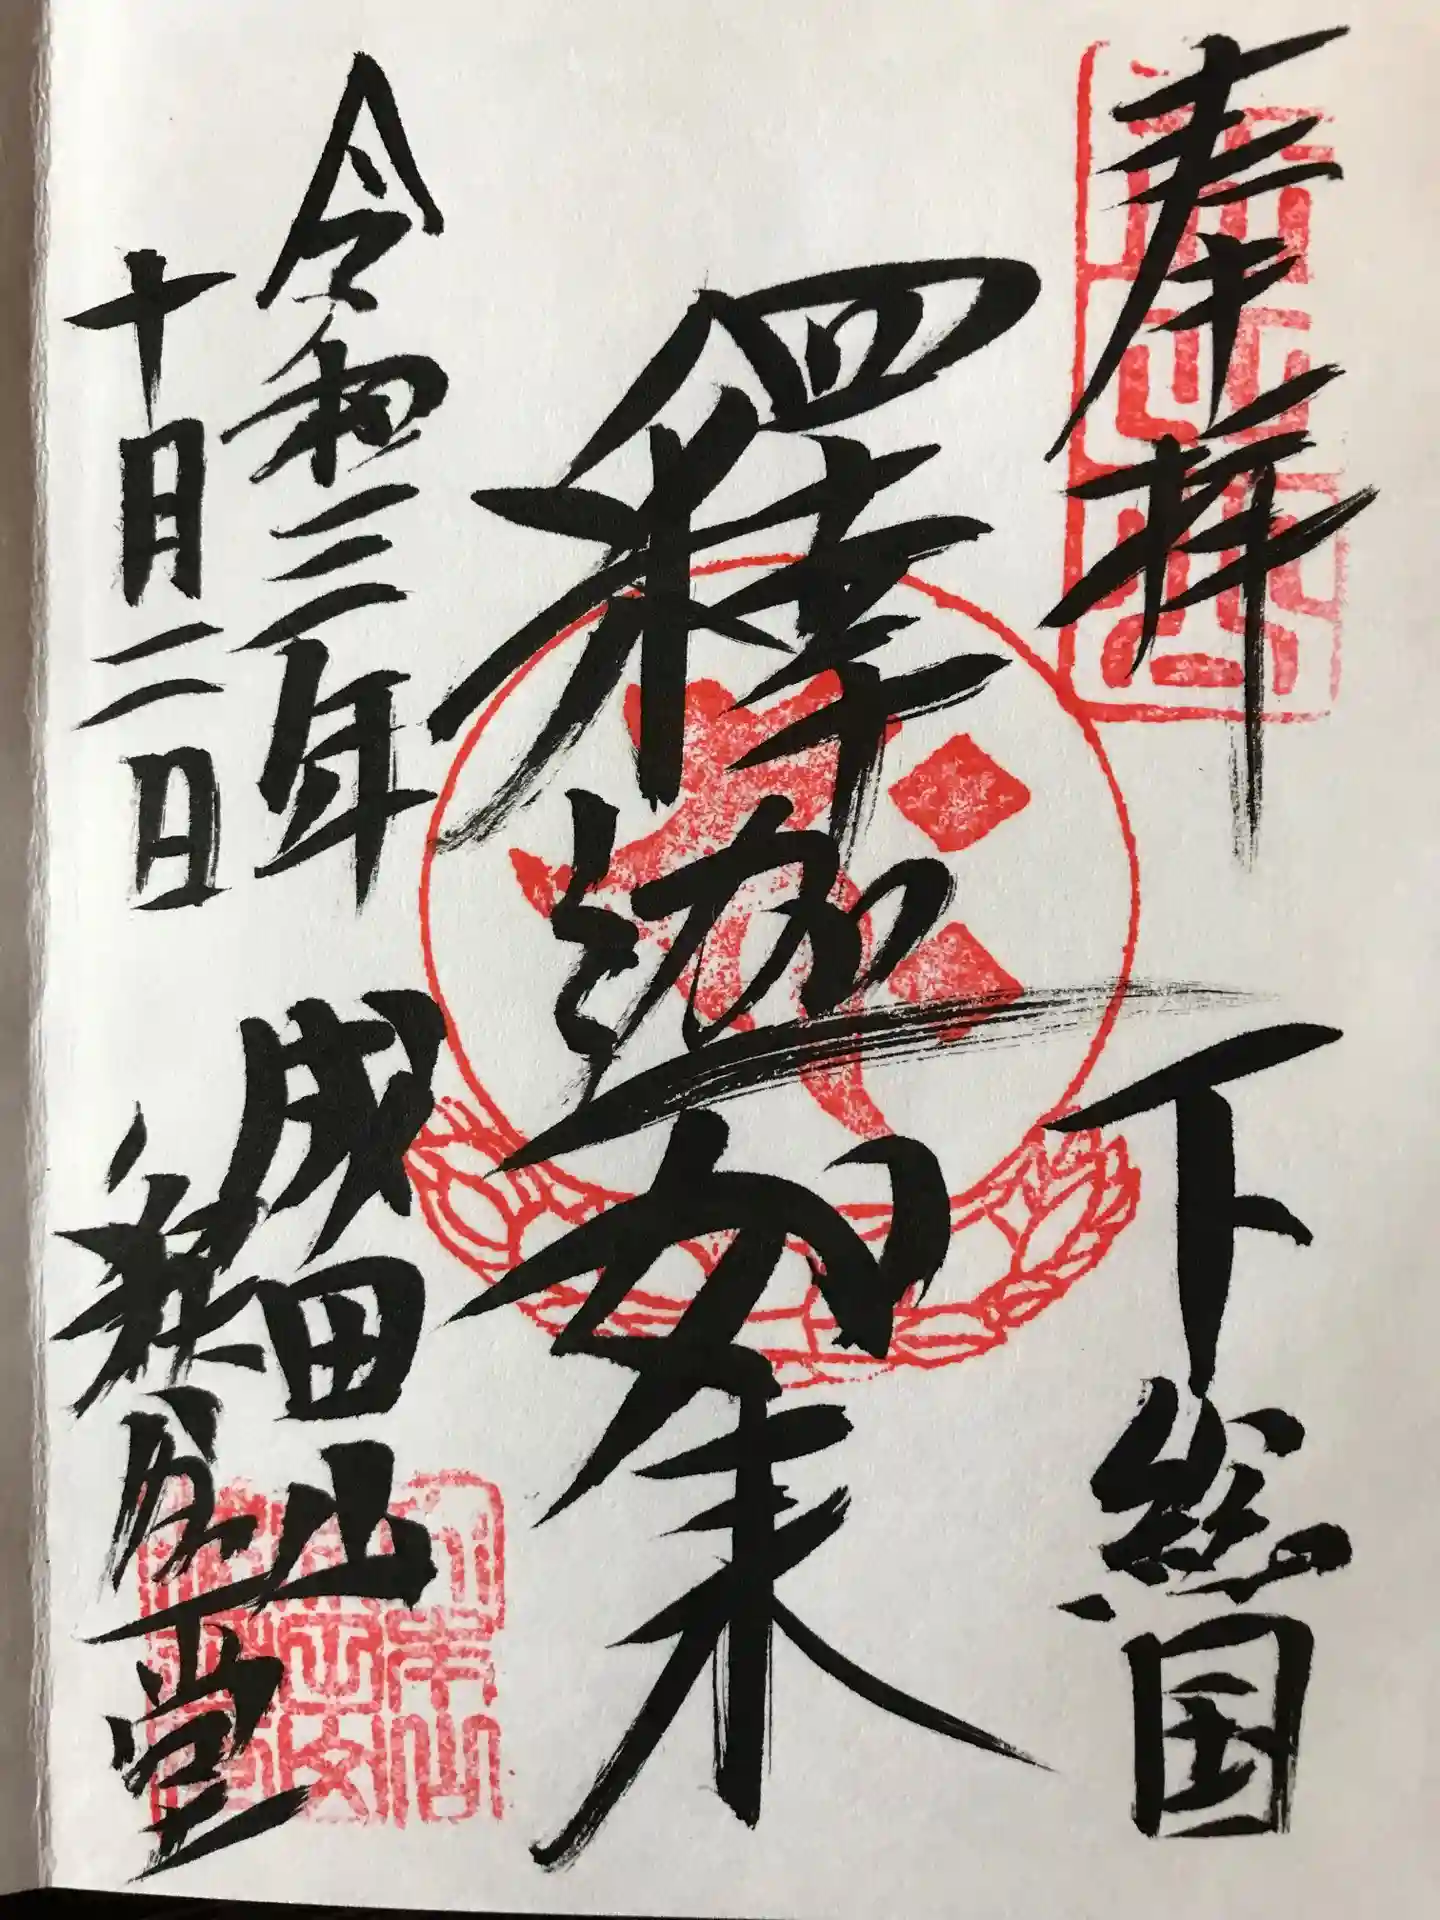 奉拝
下総国
釋迦如来
令和三年
十月二日
成田山
釋迦堂